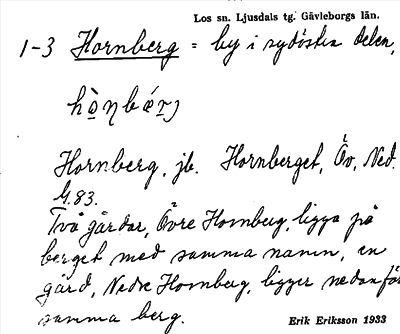 Los sn. Ljusdals tg. Gävleborgs län.
1-3 Hornberg = by i sydöstra delen,
Hornberg, jb. Hornberget, Öv, Ned.
G. 83.
Två gårdar, Övre Hornberg, ligga på
berget med samma namn, en
gård, Nedre Hornberg, ligger nedanför
samma berg.
Erik Eriksson 1933